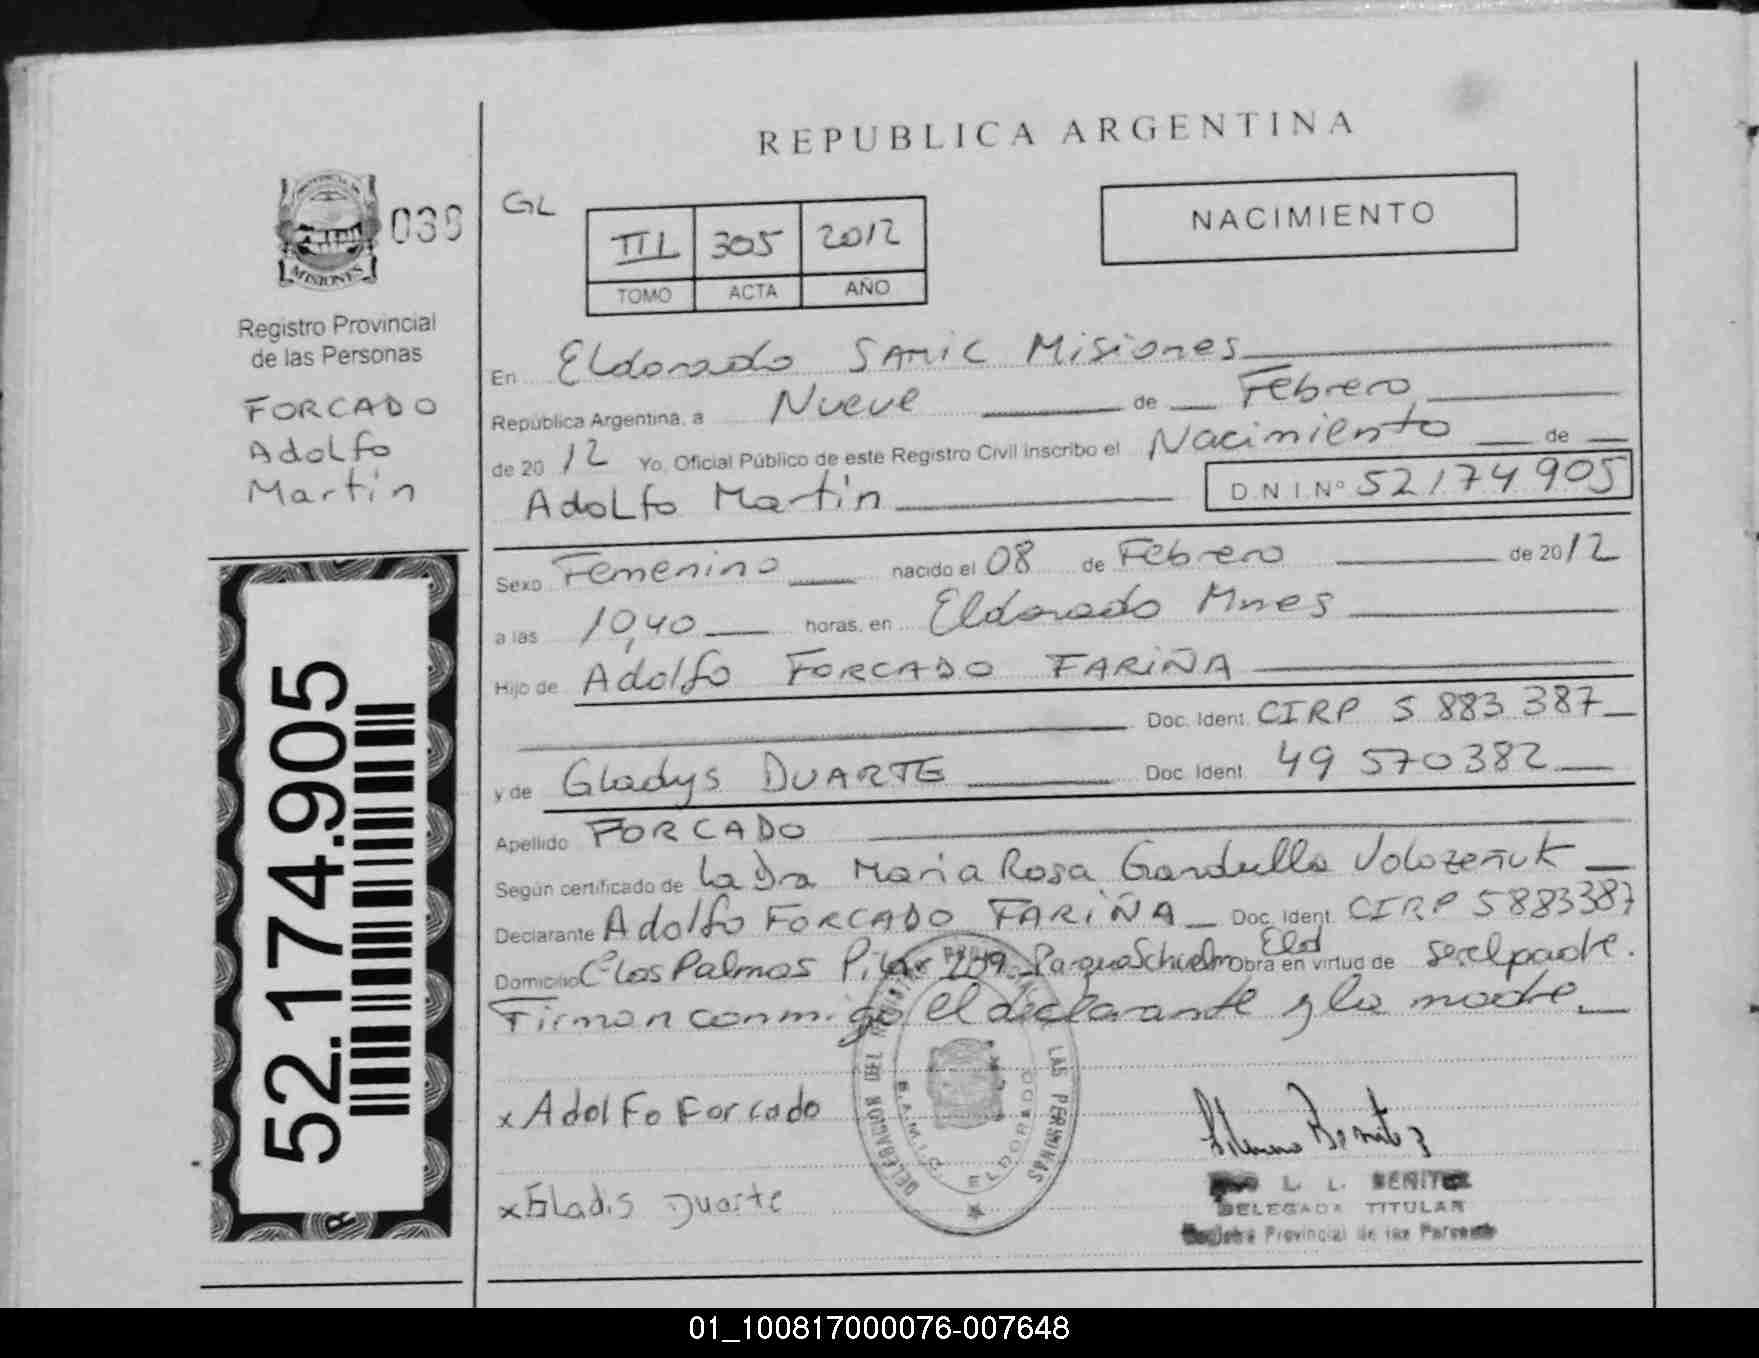 REPUBLICA ARGENTINA
NACIMIENTO
GL
III 305 2012
TOMO ACTA AÑO
PROVINCIA DE
MISIONES
039
Registro Provincial
de las Personas
FORCADO
Adolfo
Martín
52.174.905
En Eldorado SAMIC Misiones
República Argentina, a Nueve de Febrero
de 2012 Yo, Oficial Público de este Registro Civil inscribo el Nacimiento de
Adolfo Martín D.N.I. Nº 52174905
Sexo Femenino nacido el 08 de Febrero de 2012
a las 10,40 horas, en Eldorado Mnes
Hijo de Adolfo FORCADO FARIÑA
Doc. Ident. CIRP 5 883 387
y de Gladys DUARTE Doc. Ident. 49 570382
Apellido FORCADO
Según certificado de La Dra Maria Rosa Gandulla Volozeñuk
Declarante Adolfo FORCADO FARIÑA Doc. Ident. CIRP 5883387
Eld
Domicilio C Las Palmas Obra en virtud de ser el padre.
Firman conmigo el declarante y la madre.
x Adolfo Forcado
x Gladis Duarte
DELEGACION DEL LAS PERSONAS
S.A.M.I.C. ELDORADO
L. L. BENITEZ
DELEGADA TITULAR
Registro Provincial de las Personas
01_100817000076-007648